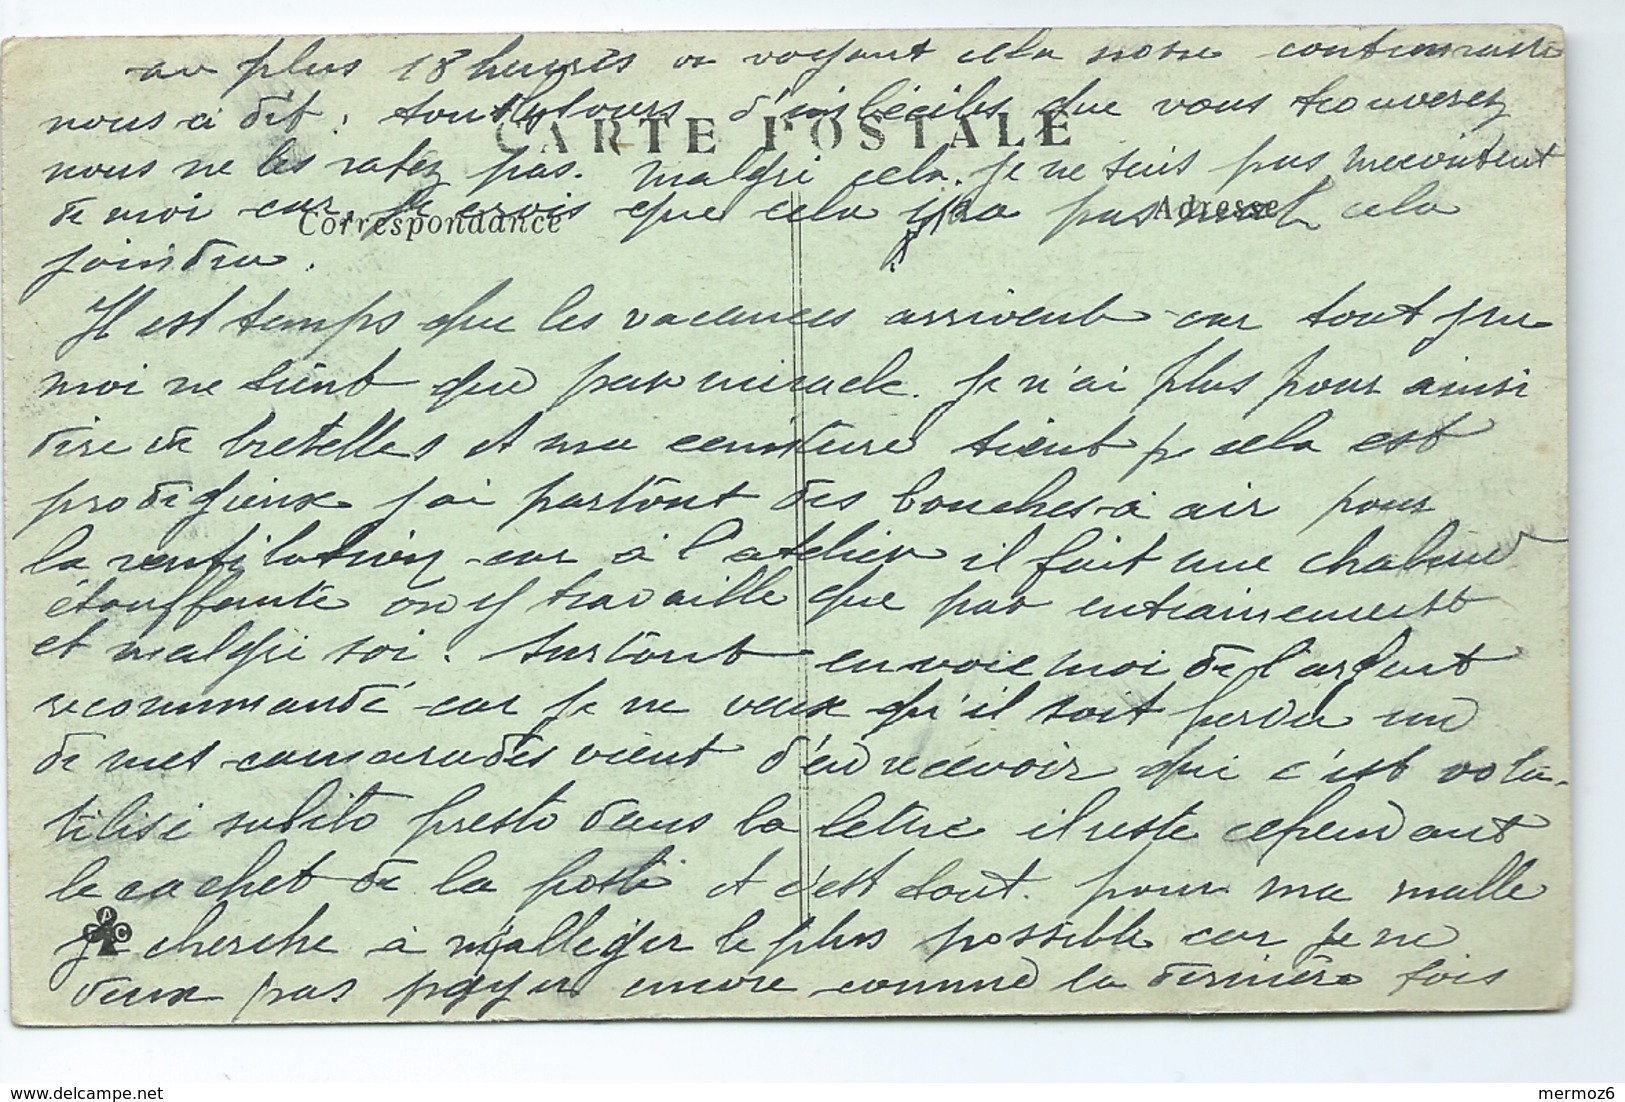 au plus 18 heures en voyant cela notre contremaitre
nous a dit : tous les tours d'imbéciles que vous trouverez
vous ne les ratez pas. malgré cela je ne suis pas mécontent
de moi car je crois que cela ira pas mal cela
CARTE POSTALE
Correspondance
Adresse
joindra.
Il est temps que les vacances arrivent car tout sur
moi ne tient que par miracle. Je n'ai plus pour ainsi
dire de bretelles et ma ceinture tient p. cela est
prodigieux j'ai partout des bouches à air pour
la ventilation car à l'atelier il fait une chaleur
étouffante on y travaille que par entrainement
et malgré soi. Surtout envoie moi de l'argent
recommandé car je ne veux qu'il soit perdu un
de mes camarades vient d'en recevoir qui s'est vola-
tilisé subito presto dans la lettre il reste cependant
le cachet de la poste et c'est tout. pour ma malle
je cherche à m'alléger le plus possible car je ne
veux pas payer encore comme la dernière fois
A
C C
delcampe.net
mermoz6